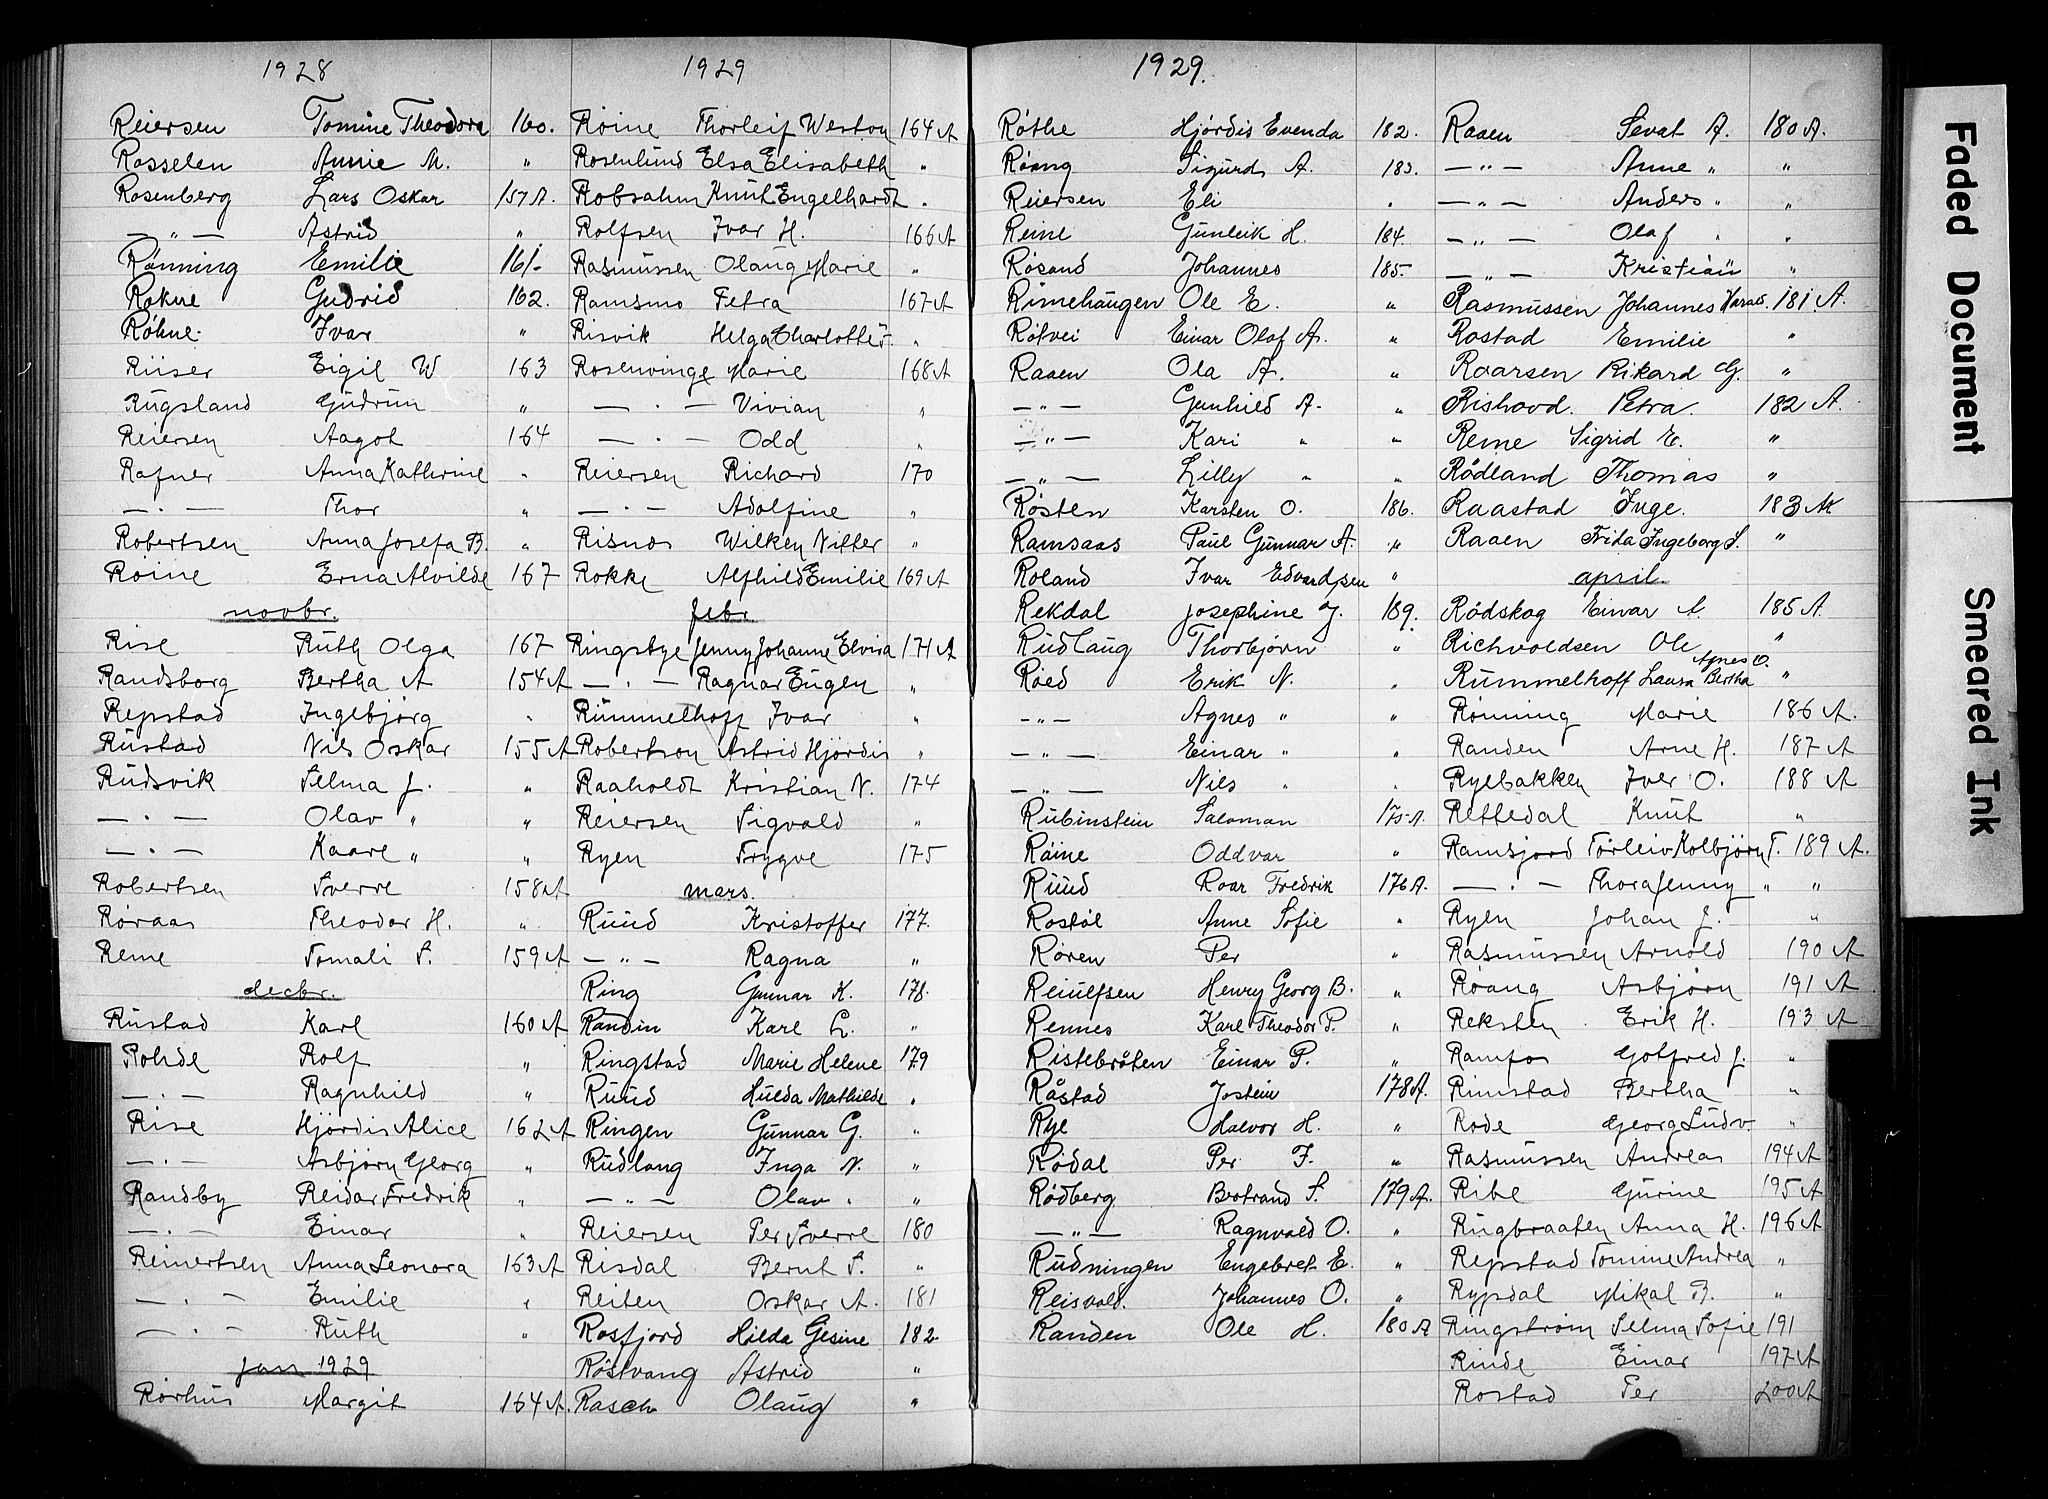 1928
Reiersen Tomine Theodora 160.
Rosselen Annie M. "
Rosenberg Lars Oskar 157 A.
— " — Astrid "
Rønning Emilie 161.
Rokne Gudrid 162.
Røhne Ivar "
Riiser Eigil W 163
Rugsland Gudrun "
Reiersen Aagot 164
Rafner Anna Kathrine "
— . — Thor "
Robertsen Anna Josefa B. "
Roine Erna Alvilde 167
novbr.
Rise Ruth Olga 167
Randsborg Bertha A 154 A
Repstad Ingebjørg "
Rustad Nils Oskar 155 A
Rudsvik Selma J. "
— . — Olav " "
— . — Kaare " "
Robertsen Sverre 158 A
Røraas Theodor H. "
Reme Tomali S. 159 A
decbr.
Rustad Karl 160 A
Rohde Rolf "
— . — Ragnhild "
Rise Hjørdis Alice 162 A
— . — Asbjørn Georg "
Randby Reidar Fredrik "
— . — Einar "
Reinertsen Anna Leonora 163 A
— . — Emilie "
— . — Ruth "
jan 1929
Rørhus Margit 164 A.
1929
Roine Thorleif Weston 164 A
Rosenlund Elsa Elisabeth "
Robsahm Knut Engelhardt "
Rolfsen Ivar H. 166 A
Rasmussen Olaug Marie "
Ramsmo Petra 167 A
Risvik Helga Charlotte F. "
Rosenvinge Marie 168 A
— . — Vivian "
— . — Odd "
Reiersen Richard 170
— . — Adolfine "
Risnes Wilken Nitter "
Rokke Alfhild Emilie 169 A
febr.
Ringstye Jenny Johanne Elvira 171 A
— . — Ragnar Eugen "
Rummelhoff Ivar "
Robertson Astrid Hjørdis "
Raaholdt Kristian N. 174
Reiersen Sigvald "
Ryen Trygve 175
mars.
Ruud Kristoffer 177.
— " — Ragna "
Ring Gunnar K. 178.
Randin Kare L. "
Ringstad Marie Helene 179
Ruud Hulda Mathilde "
Ringen Gunnar G. "
Rudlang Inga N. "
— " — Olav " "
Reiersen Per Sverre 180
Risdal Bernt S. "
Reiten Oskar A. 181
Rosfjord Hilda Gesine 182.
Røstvang Astrid "
Rasch Olaug "
1929.
Røthe Hjørdis Evenda 182.
Røang Sigurd A. 183.
Reiersen Eli "
Reine Gunleik H. 184.
Røsand Johannes 185.
Rimehaugen Ole E. "
Røtvei Einar Olaf A. "
Raaen Ola A. "
— " — Gunhild A. "
— " — Kari " "
— " — Lilly " "
Røsten Karsten O. 186.
Ramsaas Paul Gunnar A. "
Roland Ivar Edvardsen "
Rekdal Josephine J. 189.
Rudlaug Thorbjørn "
Røed Erik N. "
— " — Agnes " "
— " — Einar " "
— " — Nils " "
Rubinstein Saloman 175 A.
Røine Oddvar "
Ruud Roar Fredrik 176 A.
Rostøl Anne Sofie "
Røren Per "
Reiulfsen Henry Georg B. "
Rennes Karl Theodor P. "
Ristebråten Einar P. "
Råstad Jostein 178 A.
Rye Halvor H. "
Rødal Per F. "
Rødberg Bertrand S. 179 A.
— " — Ragnvald O. "
Rudningen Engebret E. "
Reisvold. Johannes O. "
Randen Ole H. 180 A
Raaen Sevat A. 180 A.
— " — Anne " "
— " — Anders " "
— " — Olaf " "
— " — Kristian "
Rasmussen Johannes Harald. 181. A.
Rostad Emilie "
Roarsen Rikard G. "
Rishovd. Petra. 182 A.
Reme Sigrid E. "
Rødland Thomas "
Raastad Inge. 183 A
Raaen Frida Ingeborg S. "
april.
Rødskog Einar A. 185 A
Richvoldsen Ole "
Rummelhoff Laura Bertha Agnes O. "
Rønning Marie 186 A.
Randen Arne H. 187 A
Ryebakken Iver O. 188 A
Rettedal Knut "
Ramsjord Torleiv Kolbjørn T. 189 A.
— . — Thora Jenny " "
Ryen Johan J. "
Rasmussen Arnold 190 A
Røang Asbjørn 191 A
Reksten Erik H. 193 A
Ramfos Gotfred J. "
Rimstad Bertha "
Rode Georg Ludv. "
Rasmussen Andreas 194 A
Ribe Gurine 195 A
Rugbraaten Anna H. 196 A
Repstad Tomine Andrea "
Rypdal Mikal B. "
Ringstrøm Selma Sofie 191
Rinde Einar 197 A
Rostad Per 200 A
Faded Document
Smeared Ink